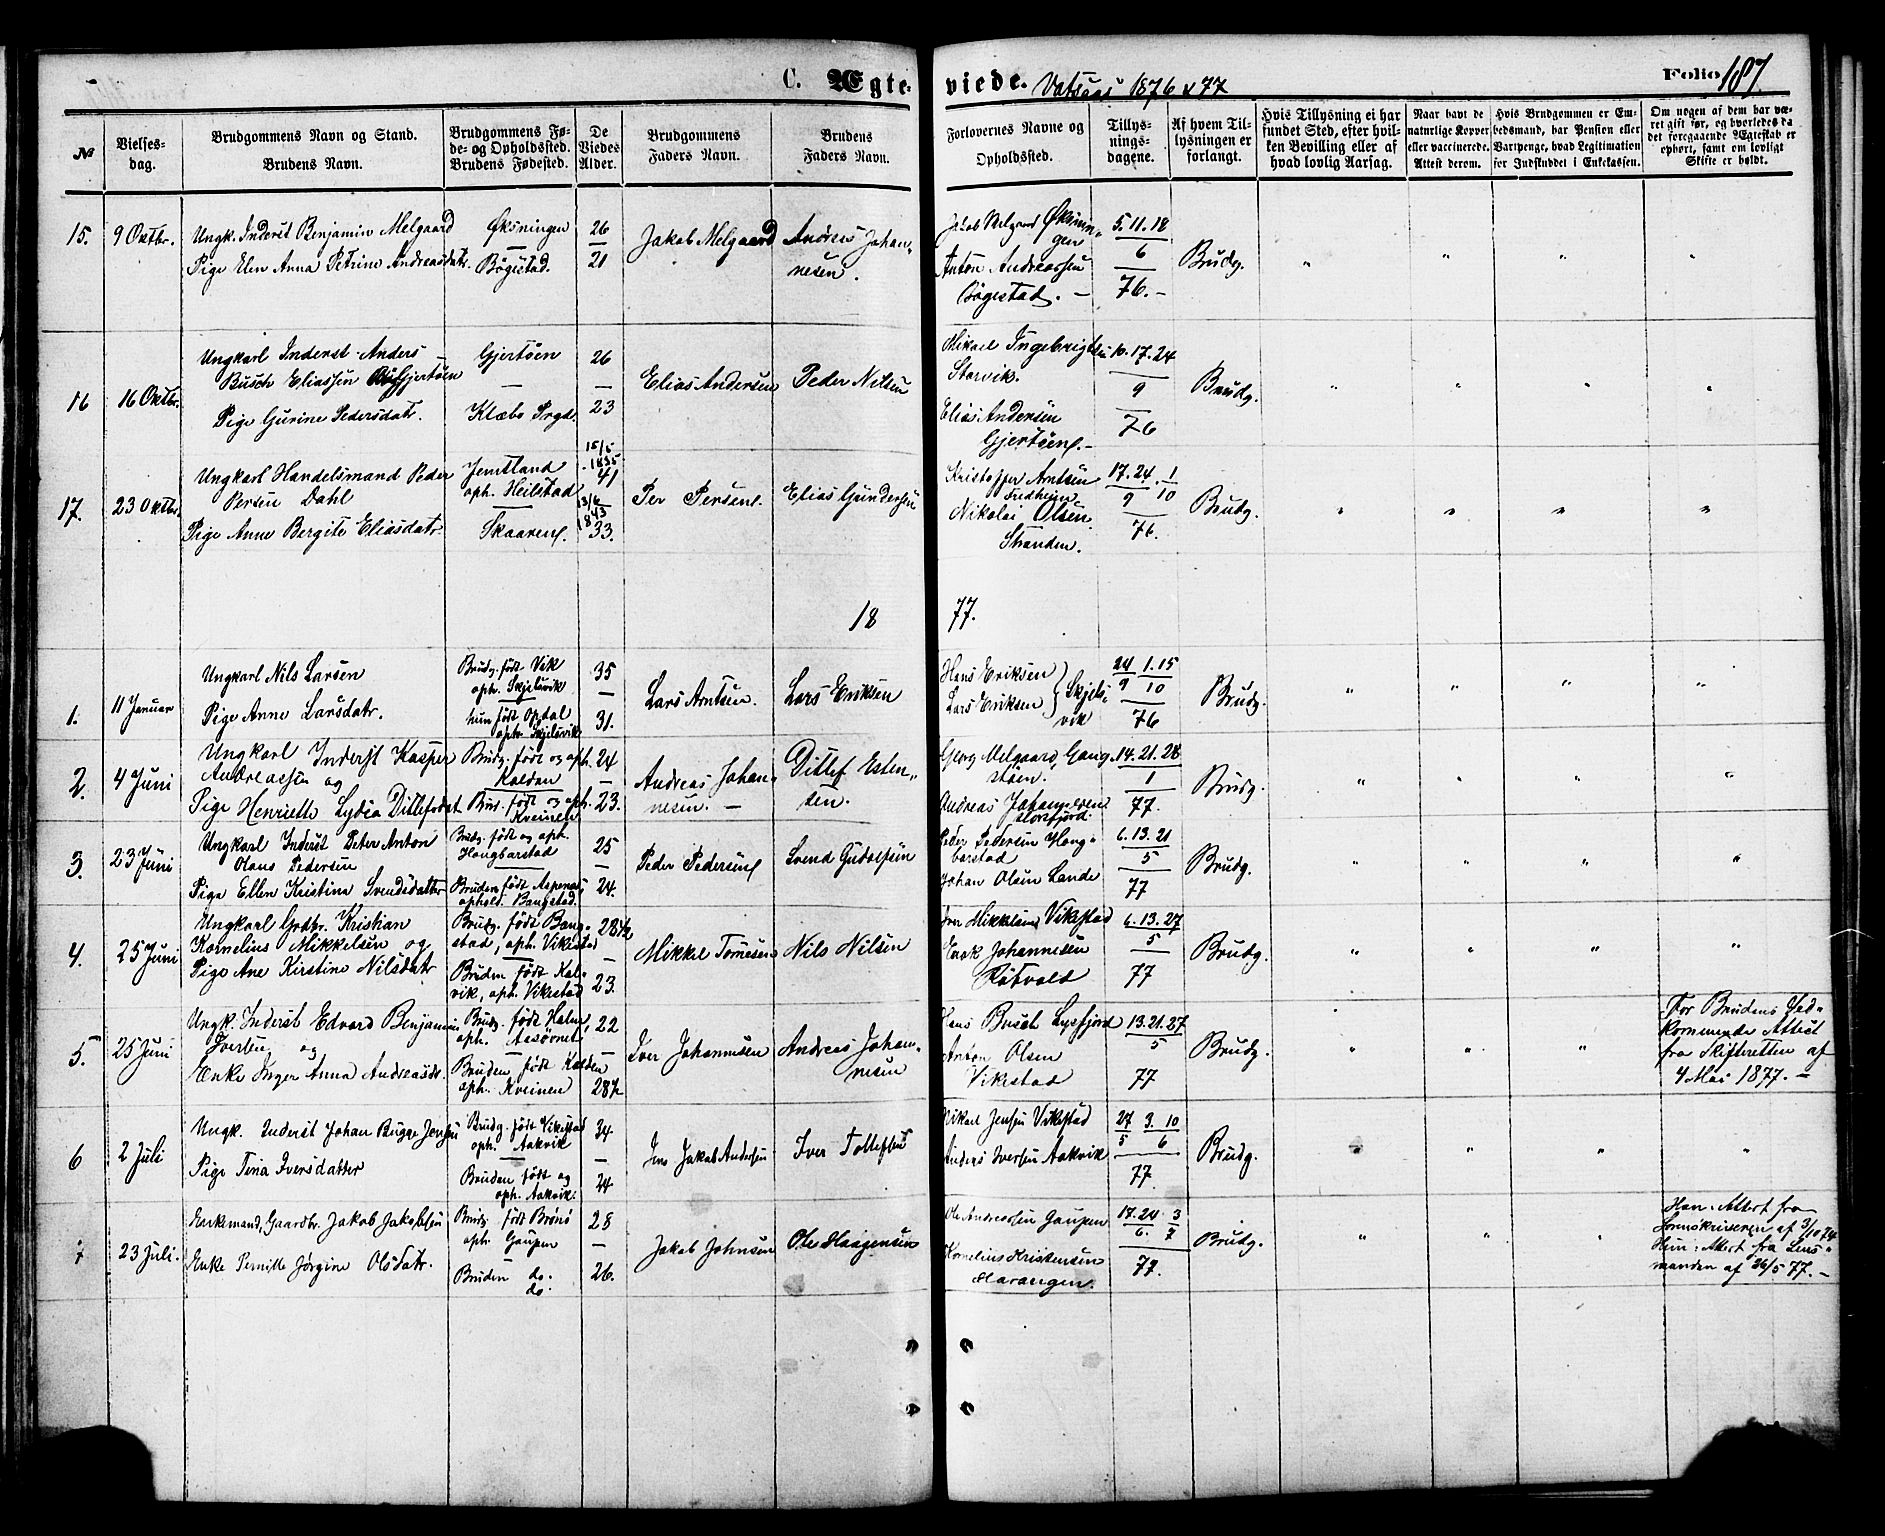 C. Ægteviede. Vatsaas 1876 & 77
Folio 187.
№
Vielsesdag.
Brudgommens Navn og Stand.
Brudens Navn.
Brudgommens Føde- og Opholdssted.
Brudens Fødested.
De Viedes Alder.
Brudgommens Faders Navn.
Brudens Faders Navn.
Forlovernes Navne og Opholdssted.
Tillysningsdagene.
Af hvem Tillysningen er forlangt.
Hvis Tillysning ei har fundet Sted, efter hvilken Bevilling eller af hvad lovlig Aarsag.
Naar havt de naturlige Kopper eller vaccinerede. Attest derom.
Hvis Brudgommen er Embedsmand, har Pension eller Vartpenge, hvad Legitimation for Indskuddet i Enkekassen.
Om nogen af dem har været gift før, og hvorledes da det foregaaende Ægteskab er ophørt, samt om lovligt Skifte er holdt.
15. 9 Oktbr.
Ungk. Inderst Benjamin Melgaard
Pige Elen Anna Petrine Andreasdatr.
Økningen
—
Bøgestad.
26
—
21
Jakob Melgaard
Andreas Johan-
nesen.
Jakob Melgaard Øknin-
gen
Anton Andreassen
Bøgestad. —
5. 11. 18
6
76. —
Brudg.
16 16 Oktbr.
Ungkarl Inderst Anders
Busch Eliassen Gjertøen
Pige Gurine Pedersdatr.
Gjertøen
—
Klæbo Prgd.
26
—
23
Elias Andersen
Peder Nilsen
Mikael Ingebrigtsen
Storvik.
Elias Andersen
Gjertøen. —
10. 17. 24
9
76
Brudg.
17. 23 Oktbr.
Ungkarl Handelsmand Peder
Persen Dahl
Pige Anne Bergite Eliasdatr.
Jemtland
oph. Heilstad
—
Skaaren.
15/5
1835
41
13/6
1843
33.
Per Persen.
Elias Gundersen
Kristoffer Arntsen
Fredheim
Nikolai Olsen
Stranden.
17. 24. 1
9 10
76.
Brudg.
18 77.
1. 11 Januar
Ungkarl Nils Larsen
Pige Anne Larsdatr.
Brudg. født Vik
oph. Skjelsvik
hun født Opdal
oph. Skjelsvik
35
—
31.
Lars Arntsen.
Lars Eriksen
Hans Eriksen
Lars Eriksen } Skjels-
vik
24 1. 15
9 10
76
Brudg.
2. 4 Juni
Ungkarl Inderst Kasper
Andreassen og
Pige Henriette Lydia Ditlefsdat
Brudg. født og oph.
Kalden
Brud. født og oph.
Kveinen
24
—
23.
Andreas Johan-
nesen. —
Ditlef Esten-
sen.
Georg Melgaard, Gang-
støen.
Andreas Johannesen
Storfjord.
14. 21. 28
1
77.
Brudg.
3. 23 Juni
Ungkarl Inderst Peter Anton
Olaus Pedersen
Pige Ellen Kristina Svendsdatter
Brudg. født og oph.
Hongbarstad
Bruden født Aspenes,
ophold. Bangstad.
25
—
24.
Peder Pedersen
Svend Gudolfsen
Peder Pedersen Hong-
barstad
Johan Olsen Lande
6. 13. 21
5
77
Brudg.
4. 25 Juni
Ungkarl Grdbr. Kristian
Kornelius Mikkelsen og
Pige Ane Kirstine Nilsdatr
Brudg. født Bang-
stad, oph. Vikestad
Bruden født Kal-
vik, oph. Vikestad
28 1/2
—
23.
Mikkel Tørresen
Nils Nilsen
Iver Mikkelsen Vikestad
Enok Johannesen
Røtvold
6. 13. 27
5
77
Brudg.
5. 25 Juni
Ungk. Inderst Edvard Benjamin
Iversen og
Enke Inger Anna Andreasdr.
Brudg. født Holm,
oph. Aasørnet
Bruden født Kalden
oph. Kveinen
22
—
28 1/2
Iver Johannesen
Andreas Johan-
nesen
Hans Busch Lysfjord
Anton Olsen
Vikestad
13. 21. 27
5
77
Brudg.
For Brudens Ved-
kommende Attest
fra Skifteretten af
4 Mai 1877. —
6 2 Juli
Ungk. Inderst Johan Bugge Jensen
Pige Tina Iversdatter
Brudg. født Vikestad
oph. Aakvik
Bruden født og
oph. Aakvik.
34
—
24
Jens Jakob Andersen
Iver Tollefsen
Mikael Jensen Vikestad
Anders Iversen Aakvik
27 3. 10
5 6
77.
Brudg.
7 23 Juli.
Enkemand, Gaardbr. Jakob Jakobsen
Enke Pernille Jørgine Olsdatr.
Brudg. født Brønø
oph. Gaupen
Bruden do.
do.
28
—
26.
Jakob Johnsen
Ole Haagensen
Ole Andreassen Gaupen
Kornelius Kristensen
Harangen.
17. 24 3
6. 7
77.
Brudg.
Han: Attest fra
Sorenskriveren af 3/10 74
Hun: Attest fra Lens-
manden af 26/5 77. —